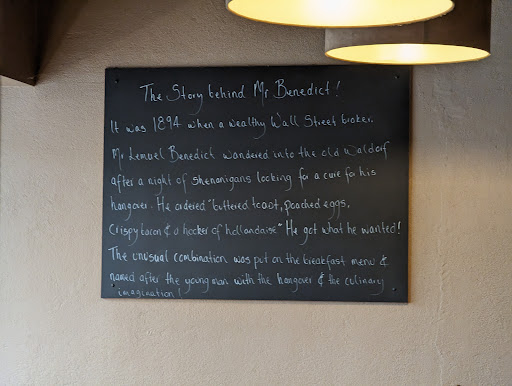 The Story behind Mr Benedict!
It was 1894 when a wealthy Wall Street broker.
Mr Lemuel Benedict wandered into the old Waldorf
after a night of shenanigans looking for a cure for his
hangover. He ordered "buttered toast, poached eggs,
Crispy bacon & a hooker of hollandaise" He got what he wanted!
The unusual combination was put on the breakfast menu &
named after the young man with the hangover & the culinary
imagination!